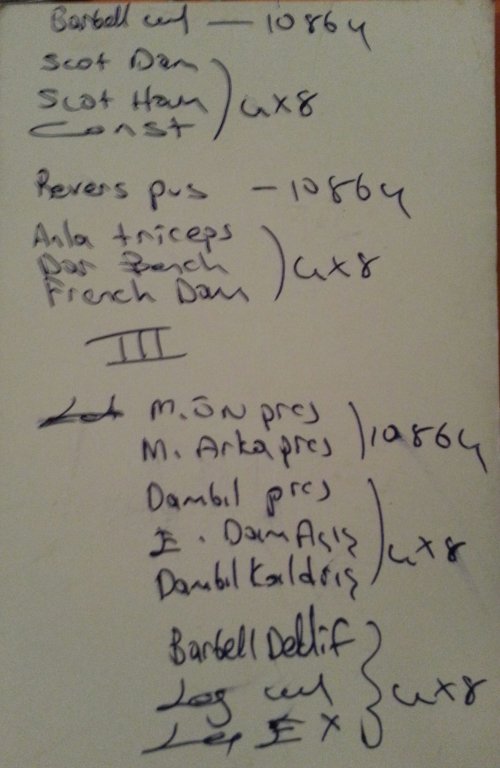 Barbell curl — 10 8 6 4
Scot Dam
Scot Ham
Const ) 4x8
Revers pus — 10 8 6 4
Arka triceps
Dar Bench
French Dam ) 4x8
III
M. ÖN pres
M. Arka pres ) 10 8 6 4
Dambıl pres
E. Dam Açış
Dambıl Kaldrış ) 4x8
Barbell Detlif
Leg curl
Leg E X } 4x8